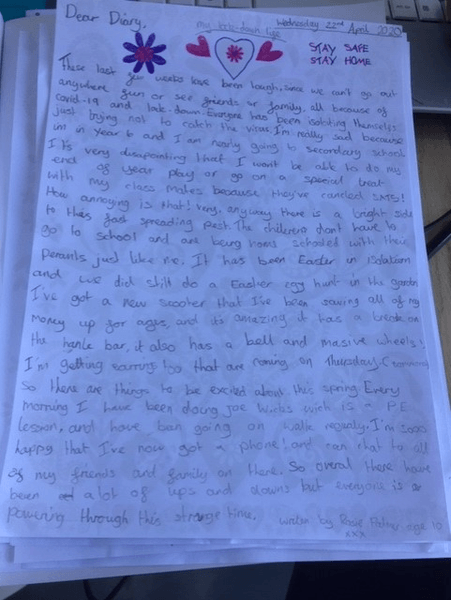 Dear Diary,
my lock down life
Wednesday 22nd April 2020
STAY SAFE
STAY HOME
These last few weeks have been tough, since we can't go out
anywhere fun or see friends or family, all because of
covid-19 and lock-down. Everyone has been isolating themselfs
just trying not to catch the virus. I'm really sad because
im in Year 6 and I am nearly going to secondary school
It's very disapointing that I won't be able to do my
end of year play or go on a special treat
with my class mates because they've cancled SATS!
How annoying is that! Very, anyway there is a bright side
to this fast spreading pest. The childeren don't have to
go to school and are being home schooled with their
perants just like me. It has been Easter in isolation
and we did still do a Easher egg hunt in the garden
I've got a new scooter that I've been saving all of my
money up for ages, and it's amazing it has a break on
the hanle bar, it also has a bell and masive wheels!
I'm getting earrings too that are coming on Thursday,
So there are things to be excited about this spring. Every
morning I have been doing Joe Wicks wich is a PE
lesson, and have ben going on walks reguly. I'm sooo
happy that I've now got a phone! and can chat to all
of my friends and family on there. So overal there have
been a lot of ups and downs but everyone is
powering through this strange time. written by Rosie age 10
xxx